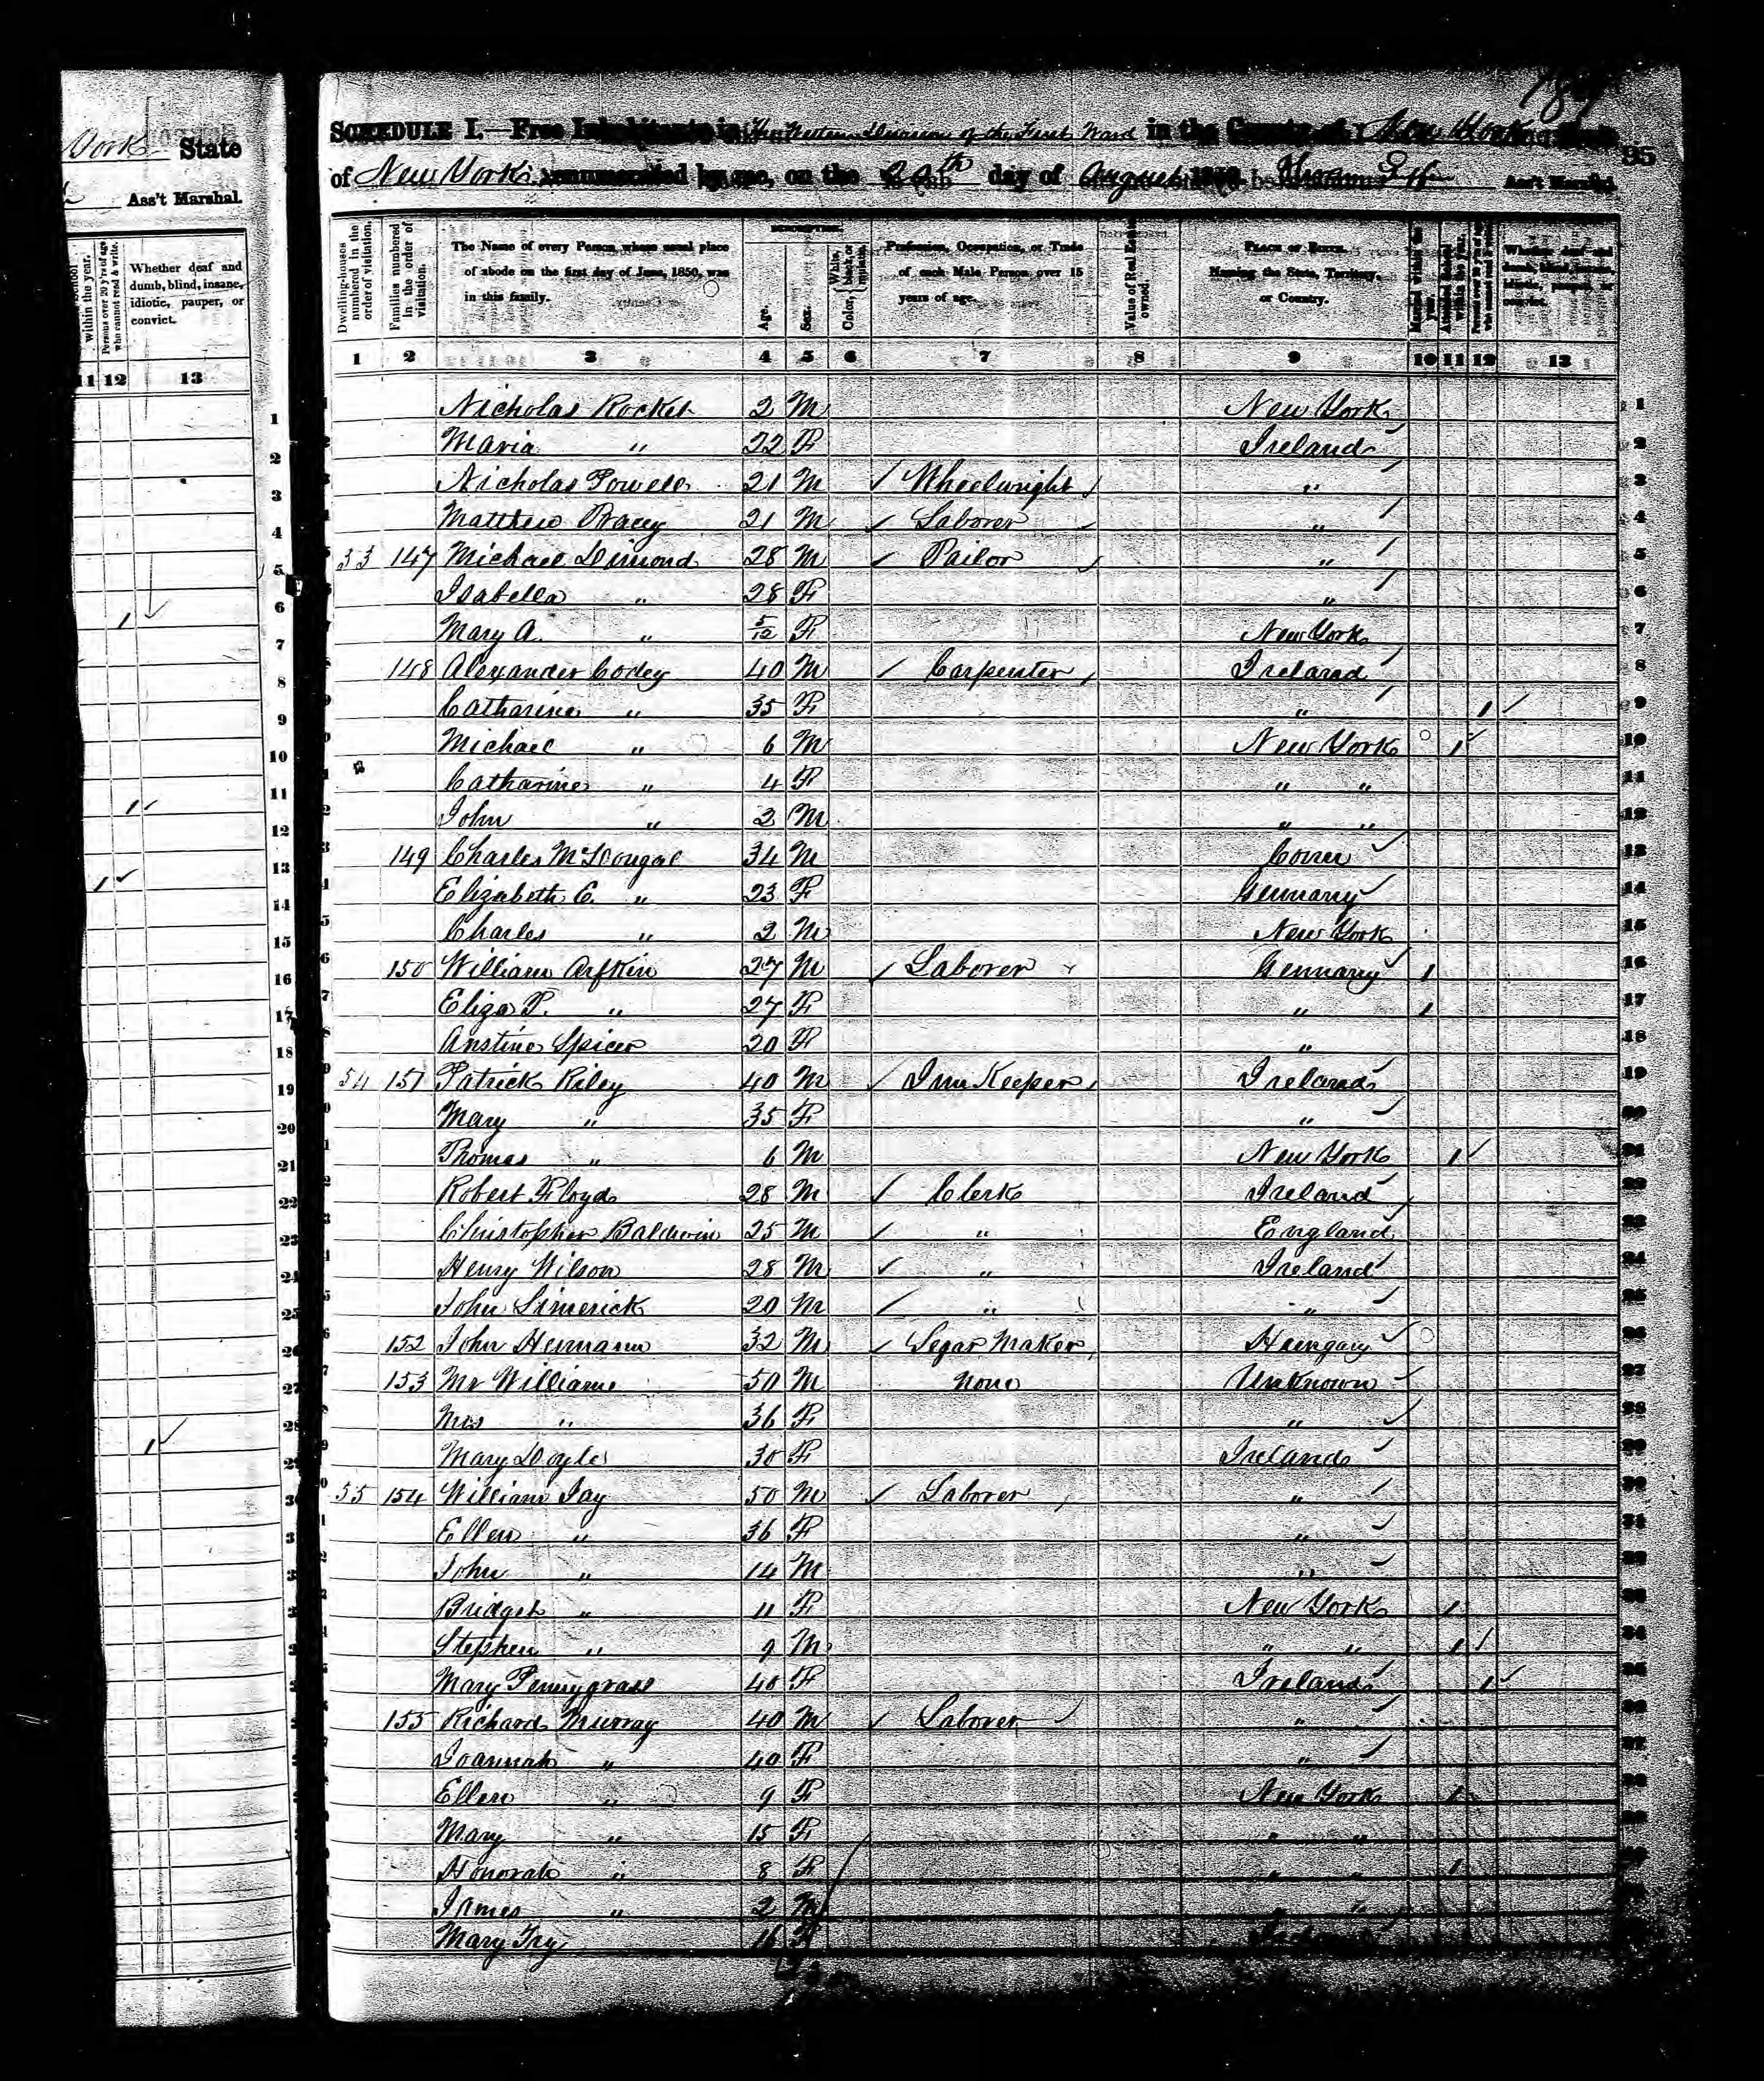 York State
Ass't Marshal.
within the year.
Persons over 20 y'rs of age who cannot read & write.
Whether deaf and dumb, blind, insane, idiotic, pauper, or convict.
11 12 13
SCHEDULE I.—Free Inhabitants in the Western Division of the First Ward in the County of New York
95
of New York enumerated by me, on the day of August 1850. Ass't Marshal.
Dwelling-houses numbered in the order of visitation.
Families numbered in the order of visitation.
The Name of every Person whose usual place of abode on the first day of June, 1850, was in this family.
DESCRIPTION.
Age.
Sex.
Color, White, black, or mulatto.
Profession, Occupation, or Trade of each Male Person over 15 years of age.
Value of Real Estate owned.
PLACE OF BIRTH. Naming the State, Territory, or Country.
Married within the year.
Attended School within the year.
Persons over 20 y'rs of age who cannot read & write.
Whether deaf and dumb, blind, insane, idiotic, pauper, or convict.
1 2 3 4 5 6 7 8 9 10 11 12 13
Nicholas Rocket 2 M New York 1
Maria " 22 F Ireland 2
Nicholas Powell 21 M Wheelwright " 3
Matthew Tracey 21 M Laborer " 4
53 147 Michael Dimond 28 M Tailor " 5
Isabella " 28 F " 6
Mary A. " 5/12 F New York 7
148 Alexander Corley 40 M Carpenter Ireland 8
Catharine " 35 F " 1 9
Michael " 6 M New York 1 10
Catharine " 4 F " " 11
John " 2 M " " 12
149 Charles McDougal 34 M Conn 13
Elizabeth C. " 23 F Germany 14
Charles " 2 M New York 15
150 William Arfkin 27 M Laborer Germany 1 16
Eliza P. " 27 F " 1 17
Anstine Spicer 20 F " 18
54 151 Patrick Riley 40 M Inn Keeper Ireland 19
Mary " 35 F " 20
Thomas " 6 M New York 1 21
Robert Floyd 28 M Clerk Ireland 22
Christopher Baldwin 25 M " England 23
Henry Wilson 28 M " Ireland 24
John Limerick 20 M " " 25
152 John Hermann 32 M Segar Maker Hungary 26
153 Mr Williams 50 M None Unknown 27
Mrs " 36 F " 28
Mary Doyle 30 F Ireland 29
55 154 William Jay 50 M Laborer " 30
Ellen " 36 F " 31
John " 14 M " 32
Bridget " 11 F New York 1 33
Stephen " 9 M " " 1 34
Mary Pennygrass 40 F Ireland 1 35
155 Richard Murray 40 M Laborer " 36
Joannah " 40 F " 37
Ellen " 9 F New York 1 38
Mary " 15 F " "
Honorah " 8 F " " 1
James " 2 M " "
Mary Fry 16 F Ireland